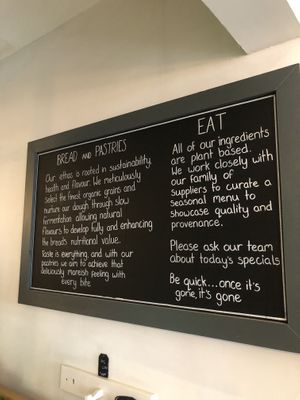 BREAD AND PASTRIES
Our ethos is rooted in sustainability,
health and flavour. We meticulously
select the finest organic grains and
nurture our dough through slow
fermentation allowing natural
flavours to develop fully and enhancing
the bread's nutritional value.
Taste is everything, and with our
pastries we aim to achieve that
deliciously moreish feeling with
every bite
EAT
All of our ingredients
are plant based.
We work closely with
our family of
suppliers to curate a
seasonal menu to
showcase quality and
provenance.
Please ask our team
about today's specials
Be quick...once it's
gone, it's gone